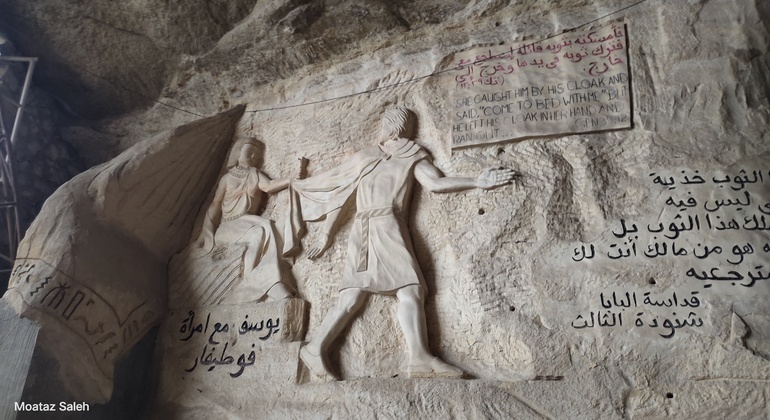 فأمسكته بثوبه قائلة
فترك ثوبه في يدها وخرج إلى
خارج.
SHE CAUGHT HIM BY HIS CLOAK AND
SAID, "COME TO BED WITH ME" BUT
HE LEFT HIS CLOAK IN HER HAND AND
RAN OUT
الثوب خذيه
ليس فيه
هذا الثوب بل
هو من مالك أنت لك
قداسة البابا
شنودة الثالث
يوسف مع امرأة
فوطيفار
Moataz Saleh